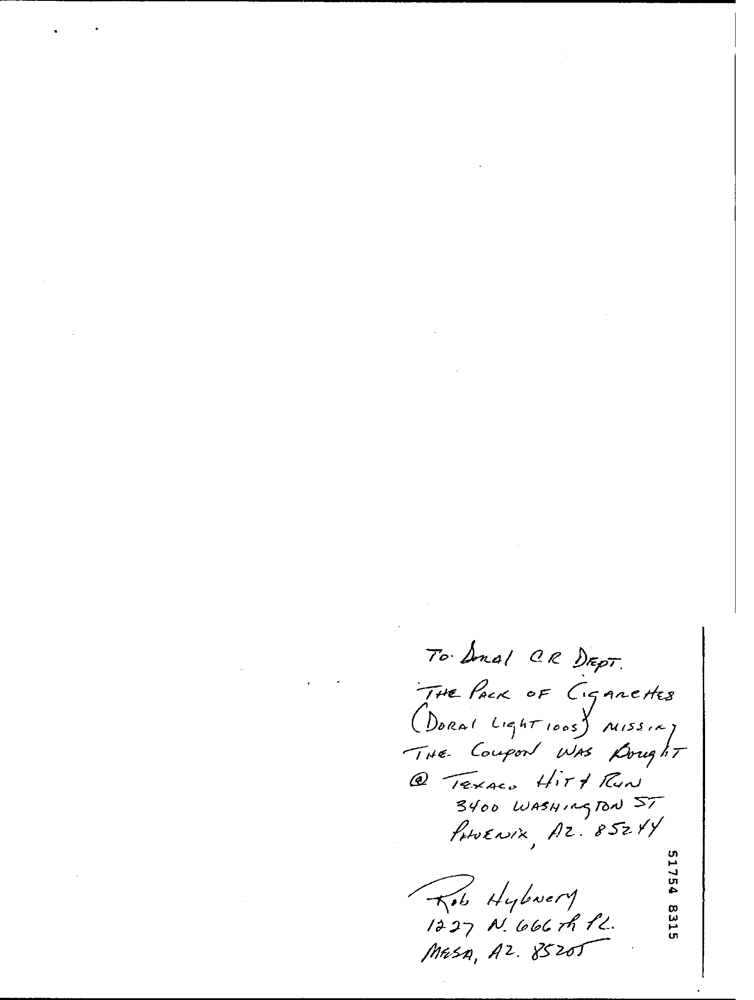 To. Doral C.R Dept.
The Pack of Cigarettes
(Doral Light 100s) missing
The Coupon was Bought
@ Texaco Hit & Run
3400 Washington St
Phoenix, Az. 85244
Rob
1227 N. 666th Pl.
Mesa, Az. 85205
51754 8315